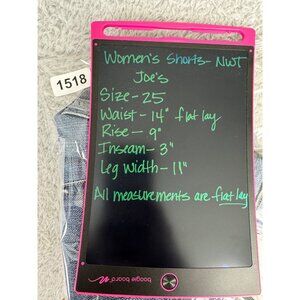 Women's Shorts- NWT
Joe's
1518
Size- 25
Waist- 14" flat lay
Rise- 9"
Inseam- 3"
Leg Width- 11"
All measurements are flat lay
boogie board